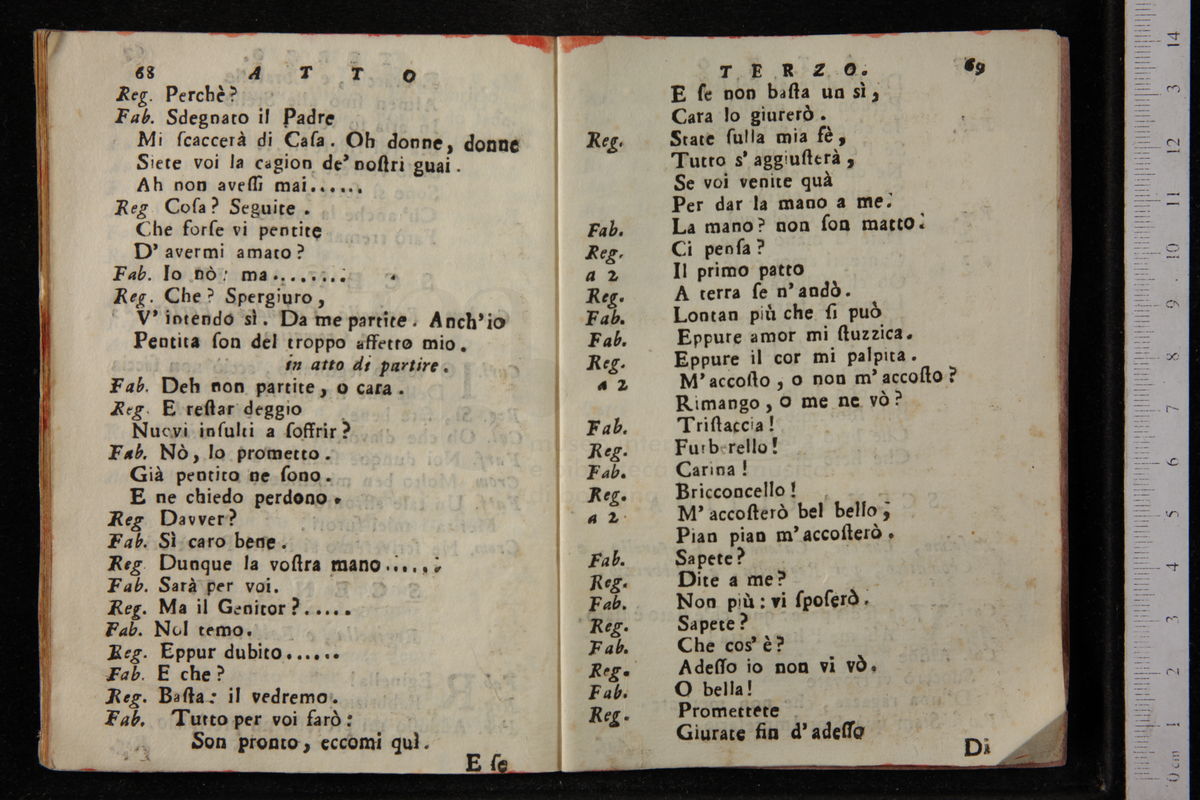 68 A T T O
Reg. Perchè?
Fab. Sdegnato il Padre
Mi ſcaccerà di Caſa. Oh donne, donne
Siete voi la cagion de' noſtri guai.
Ah non aveſſi mai......
Reg Coſa? Seguite.
Che forſe vi pentite
D'avermi amato?
Fab. Io nò: ma........
Reg. Che? Spergiuro,
V'intendo sì. Da me partite. Anch'io
Pentita ſon del troppo affetto mio.
in atto di partire.
Fab. Deh non partite, o cara.
Reg. E reſtar deggio
Nuovi inſulti a ſoffrir?
Fab. Nò, lo prometto.
Già pentito ne ſono.
E ne chiedo perdono.
Reg Davver?
Fab. Sì caro bene.
Reg. Dunque la voſtra mano......
Fab. Sarà per voi.
Reg. Ma il Genitor?.....
Fab. Nol temo.
Reg. Eppur dubito......
Fab. E che?
Reg. Baſta: il vedremo.
Fab. Tutto per voi farò:
Son pronto, eccomi quì.
E ſe
T E R Z O. 69
E ſe non baſta un sì,
Cara lo giurerò.
Reg. State ſulla mia fè,
Tutto s'aggiuſterà,
Se voi venite quà
Per dar la mano a me.
Fab. La mano? non ſon matto.
Reg. Ci penſa?
a 2 Il primo patto
Reg. A terra ſe n'andò.
Fab. Lontan più che ſi può
Fab. Eppure amor mi ſtuzzica.
Reg. Eppure il cor mi palpita.
a 2 M'accoſto, o non m'accoſto?
Rimango, o me ne vò?
Fab. Triſtaccia!
Reg. Furberello!
Fab. Carina!
Reg. Bricconcello!
a 2 M'accoſterò bel bello,
Pian pian m'accoſterò.
Fab. Sapete?
Reg. Dite a me?
Fab. Non più: vi ſpoſerò.
Reg. Sapete?
Fab. Che cos'è?
Reg. Adeſſo io non vi vò.
Fab. O bella!
Reg. Promettete
Giurate fin d'adeſſo
Di